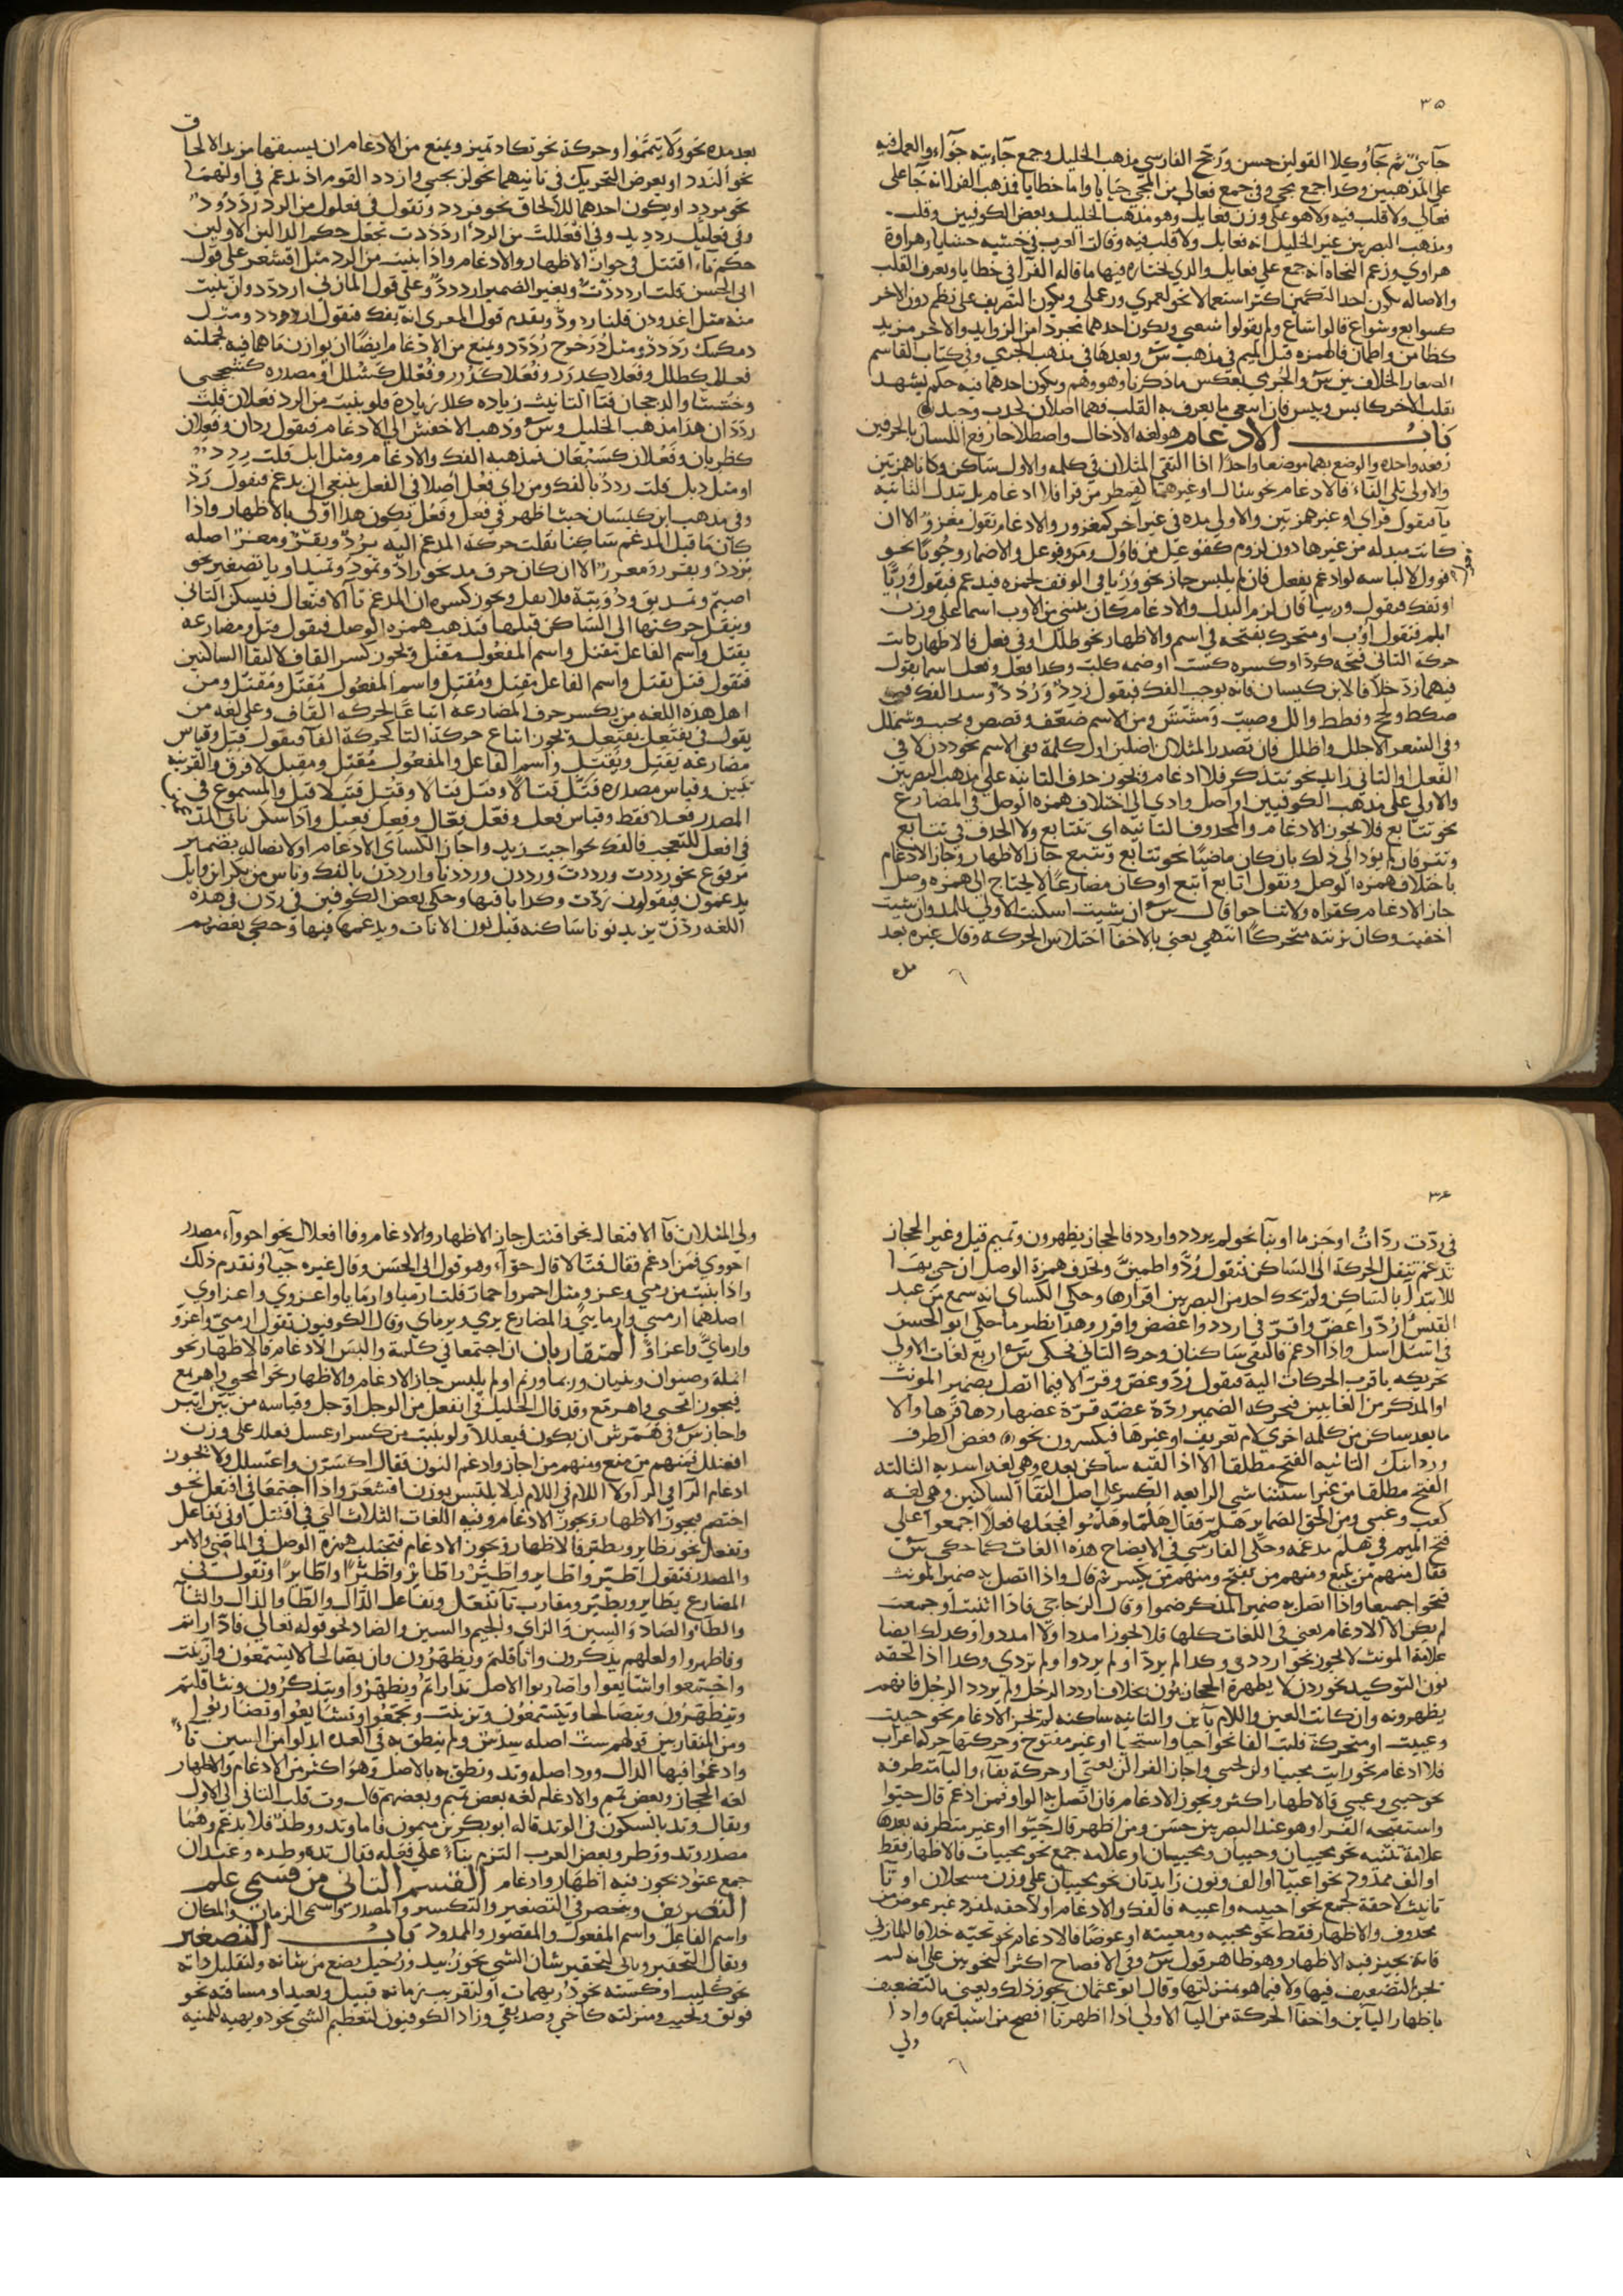 ٣٥
جآئيٌ ثم جآءٍ وكلا القولين حسن ورجح الفارسي مذهب الخليل وجمع جآءيته جوآء والعمل فيه
على المذهبين وكذا جمع يجي وفي جمع فعالى من المجي جيايا واما خطايا فمذهب الفرا انه جآ على
فعالي ولا قلب فيه ولا هو على وزن فعايل وهو مذهب الخليل وبعض الكوفيين وقلب
ومذهب البصريين غير الخليل انه فعايل ولا قلب فيه وقالت العرب في خشيه حشايا وهراوة
هراوي وزعم النحاة انه جمع على فعايل والذي نختاره فيها ما قاله الفرآ في خطايا ويعرف القلب
والاصاله بكون احد النظمين اكثر استعمالا نحو لعمري ورعملي وبكون التصريف على نظم دون الاخر
كسوايع وشواع قالوا شاع ولم يقولوا شعي وبكون احدهما مجردا من الزوايد والاخر مزيد
كطامن واطمان فالهمزه قبل الميم في مذهب س وبعدها في مذهب الجرمي وفي كتاب القاسم
الصفار الخلاف بين س والجرمي بعكس ما ذكرنا وهو وهم وبكون احدهما فيه حكم يشهد
بقلب الاخر كايس ويئس فان انتفى ما يعرف به القلب فهما اصلان كجذب وجبذ
باب الادغام هو لغة الادخال واصطلاحا رفع اللسان بالحرفين
رفعه واحده والوضع بهما موضعا واحدا اذا التقى المثلان في كلمه والاول ساكن وكانا همزتين
والاولى تلي الفاء فالادغام نحو سئال او غيرهما كقمطر من قرا فلا ادغام بل تبدل الثانيه
يآ فيقول قراي او غير همزتين والاولى مده في غير آخر كمغزو والادغام تقول مغزو الا ان
كانت مبدله من غيرها دون لزوم
او تفك فيقول ووريا فان لزم البدل والادغام
ابلم فتقول اوّب او متحرك بفتحه في اسم والاظهار نحو طلل او في فعل فالاظهار كانت
حركة الثاني فتحه كردّ او كسره كشت او ضمه كلبّ وكذا فعل وفعل اسما تقول
فيهما ردّ خلافا لابن كيسان فانه يوجب الفك فيقول رَدِد ورَدُد وشذ الفك في
صكك ولحح وقطط والل وضبب ومششت ومن الاسم ضفف وقصص
وفي الشعر الاجلل واظلل فان تصدر المثلان اصلين اول كلمة ففي الاسم نحو ددن لا في
الفعل او الثاني زايد نحو تتذكر فلا ادغام ويجوز حذف الثانيه على مذهب البصريين
والاولى على مذهب الكوفيين او اصل وادي الى اختلاف همزه الوصل في المضارع
نحو تتابع فلا يجوز الادغام والمحذوف الثانيه اي تتتابع ولا الحذف في تتتابع
وتترفان لم يؤد الى ذلك بان كان ماضيا نحو تتابع وتتبع جاز الاظهار وجاز الادغام
باختلاف همزه الوصل وتقول اتابع اتبع او كان مضارعا لا يحتاج الى همزه وصل
جاز الادغام كقراه ولا تناجوا قال س ان شيت اسكنت الاولى للمد وان شيت
اخفيت وكان بزنته متحركا انتهى يعني بالاخفا اختلاس الحركه وقال غيره بعد
بعد مده نحو ولا تيمموا او حركة نحو تكاد تميز ويمنع من الادغام ان يسبقها مزيد الالحاق
نحو ألندد او يعرض التحريك في ثانيهما نحو لن يحيي وازدد القوم اذ يدغم في اولهما
نحو مردد او يكون احدهما للالحاق نحو قردد وتقول في فعلول من الرد ردودٌ
وفي فعليل رِديد وفي افعللت من الرد ارددت تجعل حكم الدالين الاولين
حكم تاء اقتتل في جواز الاظهار والادغام واذا بنيت من الرد مثل اقشعر على قول
ابي الحسن قلت ارددّت وبغير الضمير ارددّ وعلى قول المازني ارددّد وان بنيت
منه مثل اغدودن قلنا اردودّ وتقدم قول المعري انه يفك فتقول اردودد ومثل
دمكمك رددد ومثل ذُرَحرح رُدَدّد ويمنع من الادغام ايضا ان يوازن ما هما فيه بجملته
فعلا كطلل وفعلا كدرر وفعلا كذرر
ردّدان هذا مذهب الخليل وس وذهب الاخفش الى الادغام فيقول ردان وفعلان
كظربان وفعلان كسبعان فمذهبه الفك والادغام ومثل ابل قلت ردد
او مثل دئل قلت ردد بالفك ومن راى فعل اصلا في الفعل ينبغي ان يدغم فيقول ردّ
وفي مذهب ابن كيسان حيث اظهر في فعل وفعل يكون هذا اولى بالاظهار واذا
كان ما قبل المدغم ساكنا نقلت حركة المدغم اليه يردّ ويقرّ ومعزّ اصله
الا ان كان حرف مد نحو رادّ وتمودّ وتميد او يا تصغير نحو
اصيم ومديق ودويبّة فلا نقل ويجوز كسره ان المدغم تآ الافتعال فيسكن الثاني
وينقل حركتها الى الساكن قبلها فتذهب همزه الوصل فيقول قتل ومضارعه
يقتل واسم الفاعل مقتل واسم المفعول مقتل ويجوز كسر القاف لالتقا الساكنين
فتقول قتل يقتل واسم الفاعل مقتل ومقتل واسم المفعول مقتل ومقتل ومن
اهل هذه اللغه من يكسر حرف المضارعه اتباعا لحركه القاف وعلى لغه من
يقول في يفتعل يفتعل ويجوز اتباع حركة التا لحركة الفا فيقول قتل وقياس
مضارعه يقتل ويقتتل واسم الفاعل والمفعول مقتل ومقتل لا فرق والقرينه
تبين وقياس مصدره قتل قتالا وقتل قتالا وقتل قتلا والمسموع في
المصدر فعلا فقط وقياس فعل وفعل فعال وفعل فعيل واذا سكن ثاني المد
في افعل للتعجب فالفك نحو احبب بزيد واجاز الكساي الادغام او لاتصاله بضمير
مرفوع نحو رددت ورددت ورددن ورددنا وارددن بالفك وناس من بكر ابن وايل
يدغمون فيقولون ردّت وكذا باقيها وحكى بعض الكوفيين في ردّن في هذه
اللغه ردّن يزيد نونا ساكنه قبل نون الاناث ويدغمها فيها وحكى بعضهم
٣٦
في ردّت ردّاتُ او جزما او بنآ نحو لم يردد واردد فالحجاز يظهرون وتميم قيل وغير الحجاز
تدغم تنقل الحركة الى الساكن فتقول رُدّ واطمئنّ وتحذف همزة الوصل ان جي بها
للابتدآ بالساكن ولم يحك احد من البصريين اقرارها وحكى الكساي انه سمع من عبد
القيس اردّ واعضّ وافرّ في اردد واعضض وافرر وهذا نظير ما حكى ابو الحسن
في اسئل اسل واذا ادغم فالتقى ساكنان وحرك الثاني فحكى س اربع لغات الاولى
تحريكه باقرب الحركات اليه فيقول رُدّ وعضّ وفرّ الا فيما اتصل بضمير المونث
او المذكر من الغايبين فيحركه الضمير ردّه عضّه فرّه عضها ردها فرها والا
ما بعد ساكن من كلمه اخرى لام تعريف او غيرها فيكسرون نحو فغض الطرف
وردّ ابنك الثانيه الفتح مطلقا الا اذا لقيه ساكن بعده وهي لغه اسد به الثالثه
الفتح مطلقا من غير استثنا شي الرابعه الكسر على اصل التقآ الساكنين وهي لغه
كعب وغني ومن الحق الضماير هلم فقال هلما وهلموا فجعلها فعلا اجمعوا على
فتح الميم في هلم مدغمه وحكى الفارسي في الايضاح هذه اللغات كما حكى س
فقال منهم من يتبع ومنهم من يفتح ومنهم من يكسر ثم قال واذا اتصل به ضمير المونث
فتحوا جميعا واذا اتصل به ضمير المذكر ضموا وقال الزجاجي فاذا اثنيت او جمعت
لم يكن الا الادغام يعني في اللغات كلها فلا يجوز امددا ولا امددوا وكذلك ايضا
علامة المونث لا يجوز نحو ارددي وكذا لم يردا ولم يردوا ولم تردي وكذا اذا لحقه
نون التوكيد نحو ردن لا يظهره الحجازيون بخلاف اردد الرجل ولم يردد الرجل فانهم
يظهرونه وان كانت العين واللام يآين والثانيه ساكنه لم يجز الادغام نحو حييت
وعييت او متحركة قلبت الفا نحو احيا واستحيا او غير مفتوح وحركتها حركه اعراب
فلا ادغام نحو رايت محييا ولن يحيي واجاز الفرا لن يعيّ او حركة بناء واليآ متطرفه
نحو حيي وعيي فالاظهار اكثر ويجوز الادغام فان اتصل به الواو فمن ادغم قال حيّوا
واستقبحه الفرا وهو عند البصريين حسن ومن اظهر قال حييوا او غير متطرفه بعدها
علامة تثنيه نحو محييان وحييان ومحييان او علامه جمع نحو محييات فالاظهار فقط
او الف ممدود نحو اعييا او الف ونون زايدتان نحو محييان على وزن مسحلان او تآ
تانيث لاحقة لجمع نحو احييه واعييه فالفك والادغام او لاحقه لمفرد غير عوض من
محذوف والاظهار فقط نحو محييه ومعييته او عوضا فالادغام نحو تحيّه خلافا للمازني
فانه يجيز فيه الاظهار وهو ظاهر قول س وفي الافصاح اكثر النحويين على انه لم
يجز التضعيف فيها ولا فيما هو بمنزلتها وقال ابو عثمان يجوز ذلك ويعني بالتضعيف
باظهار اليآين واخفآ الحركة من اليآ الاولى اذا اظهرتا افصح من اشباعها واذا
ولي
ولي المثلان تآ الافتعال نحو اقتتل جاز الاظهار والادغام وفا افعلال نحو احووآء مصدر
احووي فمن ادغم فقال قتالا قال حوّآء وهو قول ابي الحسن وقال غيره حيآء وتقدم ذلك
واذا بنيت من رمي وغزو مثل احمر واحمار قلت ارميا وارمايا واغزوى واغزاوى
اصلهما ارميي وارمايي والمضارع يرمي ويرماي وقال الكوفيون تقول ارميّ واغزوّ
وارمايّ واغزاوّ المتقاربان ان اجتمعا في كلمة والبس الادغام فالاظهار نحو
انملة وصنوان وبنيان وربما ورنم او لم يلبس جاز الادغام والاظهار نحو انمحى واهرنمع
فيجوز امّحى واهرمّع وقد قال الخليل في انفعل من الوجل اوّجل وقياسه من يئس ايّئس
واجاز س في همرش ان يكون فيعللا ولو بنيت من كسر او عسل فعللا على وزن
افعنلل فمنهم من منع ومنهم من اجاز وادغم النون فقال اكسرّر واعسلل ولا يجوز
ادغام الرآ في الرآ ولا اللام في اللام ليلا يلتبس بوزن اقشعر واذا اجتمعا في افتعل نحو
اختصم فيجوز الاظهار ويجوز الادغام وفيه اللغات الثلاث التي في اقتتل او في تفاعل
وتفعل نحو تطاير وتطير فالاظهار ويجوز الادغام فتجتلب همزة الوصل في الماضي والامر
والمصدر فتقول اطّير واطاير واطيّر واطاير واطيّرا واطايرا وتقول في
المضارع يطاير ويطير ومقارب تآ تفعل وتفاعل الدال والظا والذال والثآ
والطا والصاد والسين والزاي والجيم والشين والضاد نحو قوله تعالى فادّاراتم
وفاطهروا ولعلهم يذكرون واثاقلتم ويطهرون وان يصالحا لا يسمعون وازينت
واجتمعوا واشايعوا واضاربوا الاصل تدارتم ويتطهروا ويتذكرون وتثاقلتم
ويتطهرون ويتصالحا ويتسمعون وتزينت وتجمعوا وتشايعوا وتضاربوا
ومن المتقاربين قولهم ست اصله سدس ولم ينطق به في العده ابدلوا من السين تاءً
وادغموا فيها الدال وود اصله وتد ونطق به بالاصل وهو اكثر من الادغام والاظهار
لغه الحجاز وبعض تميم والادغام لغه بعض تميم وبعضهم قال وت قلب الثاني الى الاول
ويقال وتد بالسكون في الوتد قاله ابو بكر بن ميمون فاما وتد ووطد فلا يدغم وهما
مصدر وتد ووطد وبعض العرب التزم بناء على فعله فقال تده وطده وعتدان
جمع عتود يجوز فيه اظهار وادغام القسم الثاني من قسمي علم
التصريف وينحصر في التصغير والتكسير والمصدر واسمي الزمان والمكان
واسم الفاعل واسم المفعول والمقصور والممدود باب التصغير
ويقال التحقير وياتي لتحقير شان الشي نحو زبيد ورجيل يضع من شانه ولتقليل ذاته
نحو كليب او كميته نحو دريهمات او لتقريب زمانه قبيل وبعيد او مسافته نحو
فويق وتحيت ومنزلته كاخي وصديقي وزاد الكوفيون لتعظيم الشي نحو دويهيه للمنيه